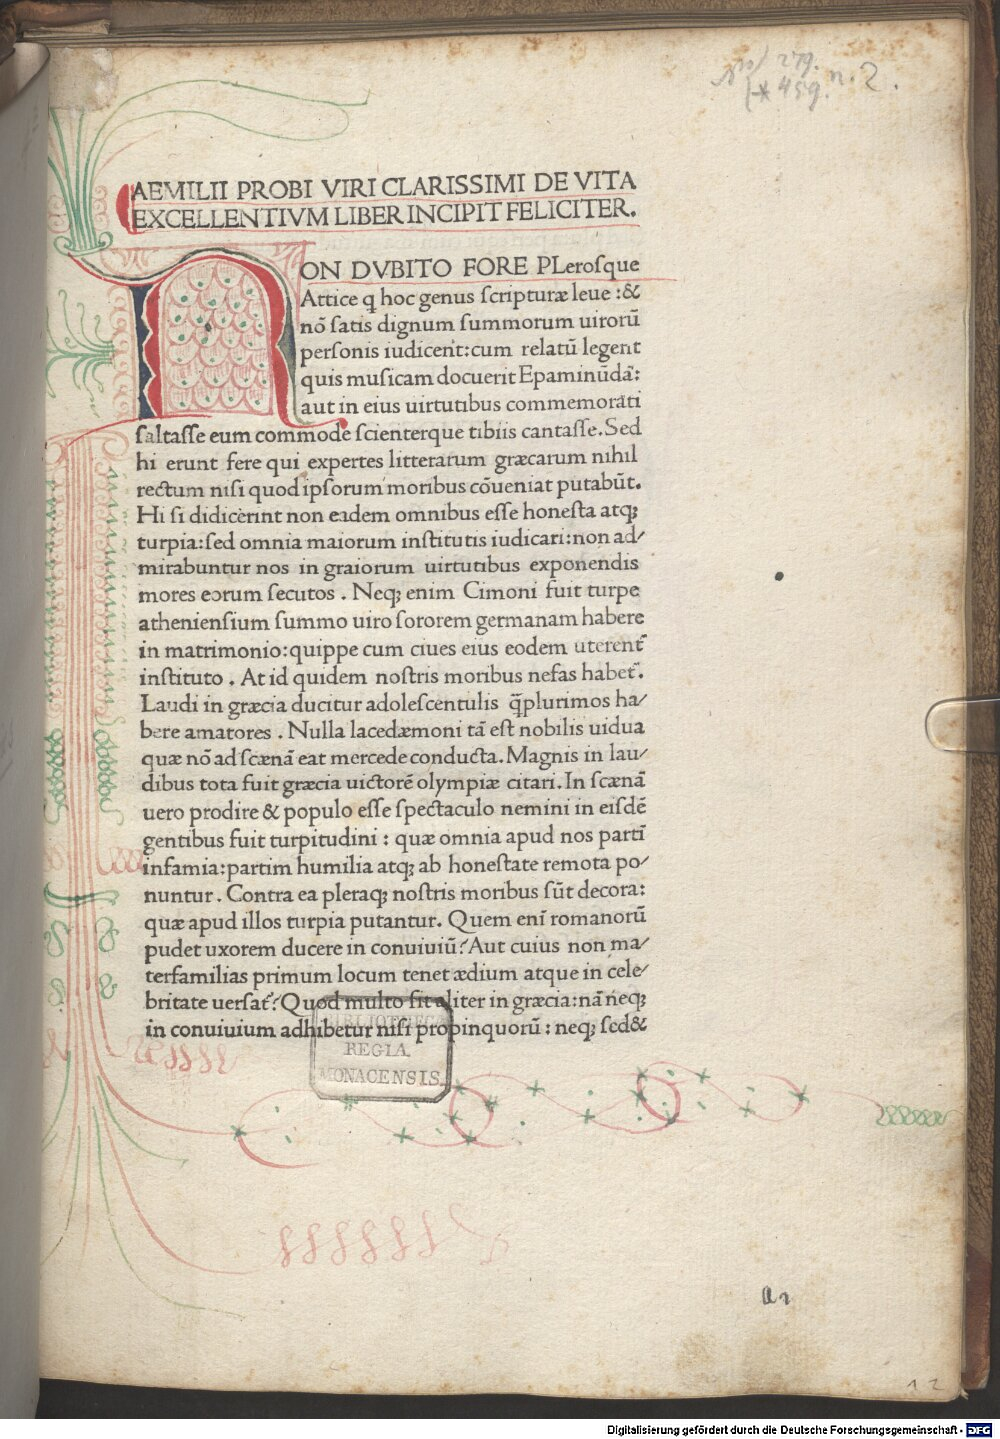 n. 2.
AEMILII PROBI VIRI CLARISSIMI DE VITA
EXCELLENTIVM LIBER INCIPIT FELICITER.
NON DVBITO FORE PLeroſque
Attice q hoc genus ſcripturæ leue :&
nō ſatis dignum ſummorum uirorū
perſonis iudicent:cum relatū legent
quis muſicam docuerit Epaminūdā:
aut in eius uirtutibus commemorati
ſaltaſſe eum commode ſcienterque tibiis cantaſſe.Sed
hi erunt fere qui expertes litterarum græcarum nihil
rectum niſi quod ipſorum moribus cōueniat putabūt.
Hi ſi didicerint non eadem omnibus eſſe honeſta atqꝫ
turpia:ſed omnia maiorum inſtitutis iudicari:non ad/
mirabuntur nos in graiorum uirtutibus exponendis
mores eorum ſecutos . Neqꝫ enim Cimoni fuit turpe
athenienſium ſummo uiro ſororem germanam habere
in matrimonio:quippe cum ciues eius eodem uterent᷑
inſtituto . At id quidem noſtris moribus nefas habet᷑.
Laudi in græcia ducitur adoleſcentulis q̄plurimos ha/
bere amatores . Nulla lacedæmoni tā eſt nobilis uidua
quæ nō ad ſcænā eat mercede conducta. Magnis in lau/
dibus tota fuit græcia uictorē olympiæ citari. In ſcænā
uero prodire & populo eſſe ſpectaculo nemini in eiſdē
gentibus fuit turpitudini : quæ omnia apud nos partī
infamia:partim humilia atqꝫ ab honeſtate remota po/
nuntur . Contra ea pleraqꝫ noſtris moribus ſūt decora:
quæ apud illos turpia putantur. Quem enī romanorū
pudet uxorem ducere in conuiuiū? Aut cuius non ma/
terfamilias primum locum tenet ædium atque in cele/
britate uerſat᷑? Quod multo fit aliter in græcia:nā neqꝫ
in conuiuium adhibetur niſi propinquorū : neqꝫ ſed&
BIBLIOTHECA
REGIA
MONACENSIS.
12
Digitalisierung gefördert durch die Deutsche Forschungsgemeinschaft - DFG